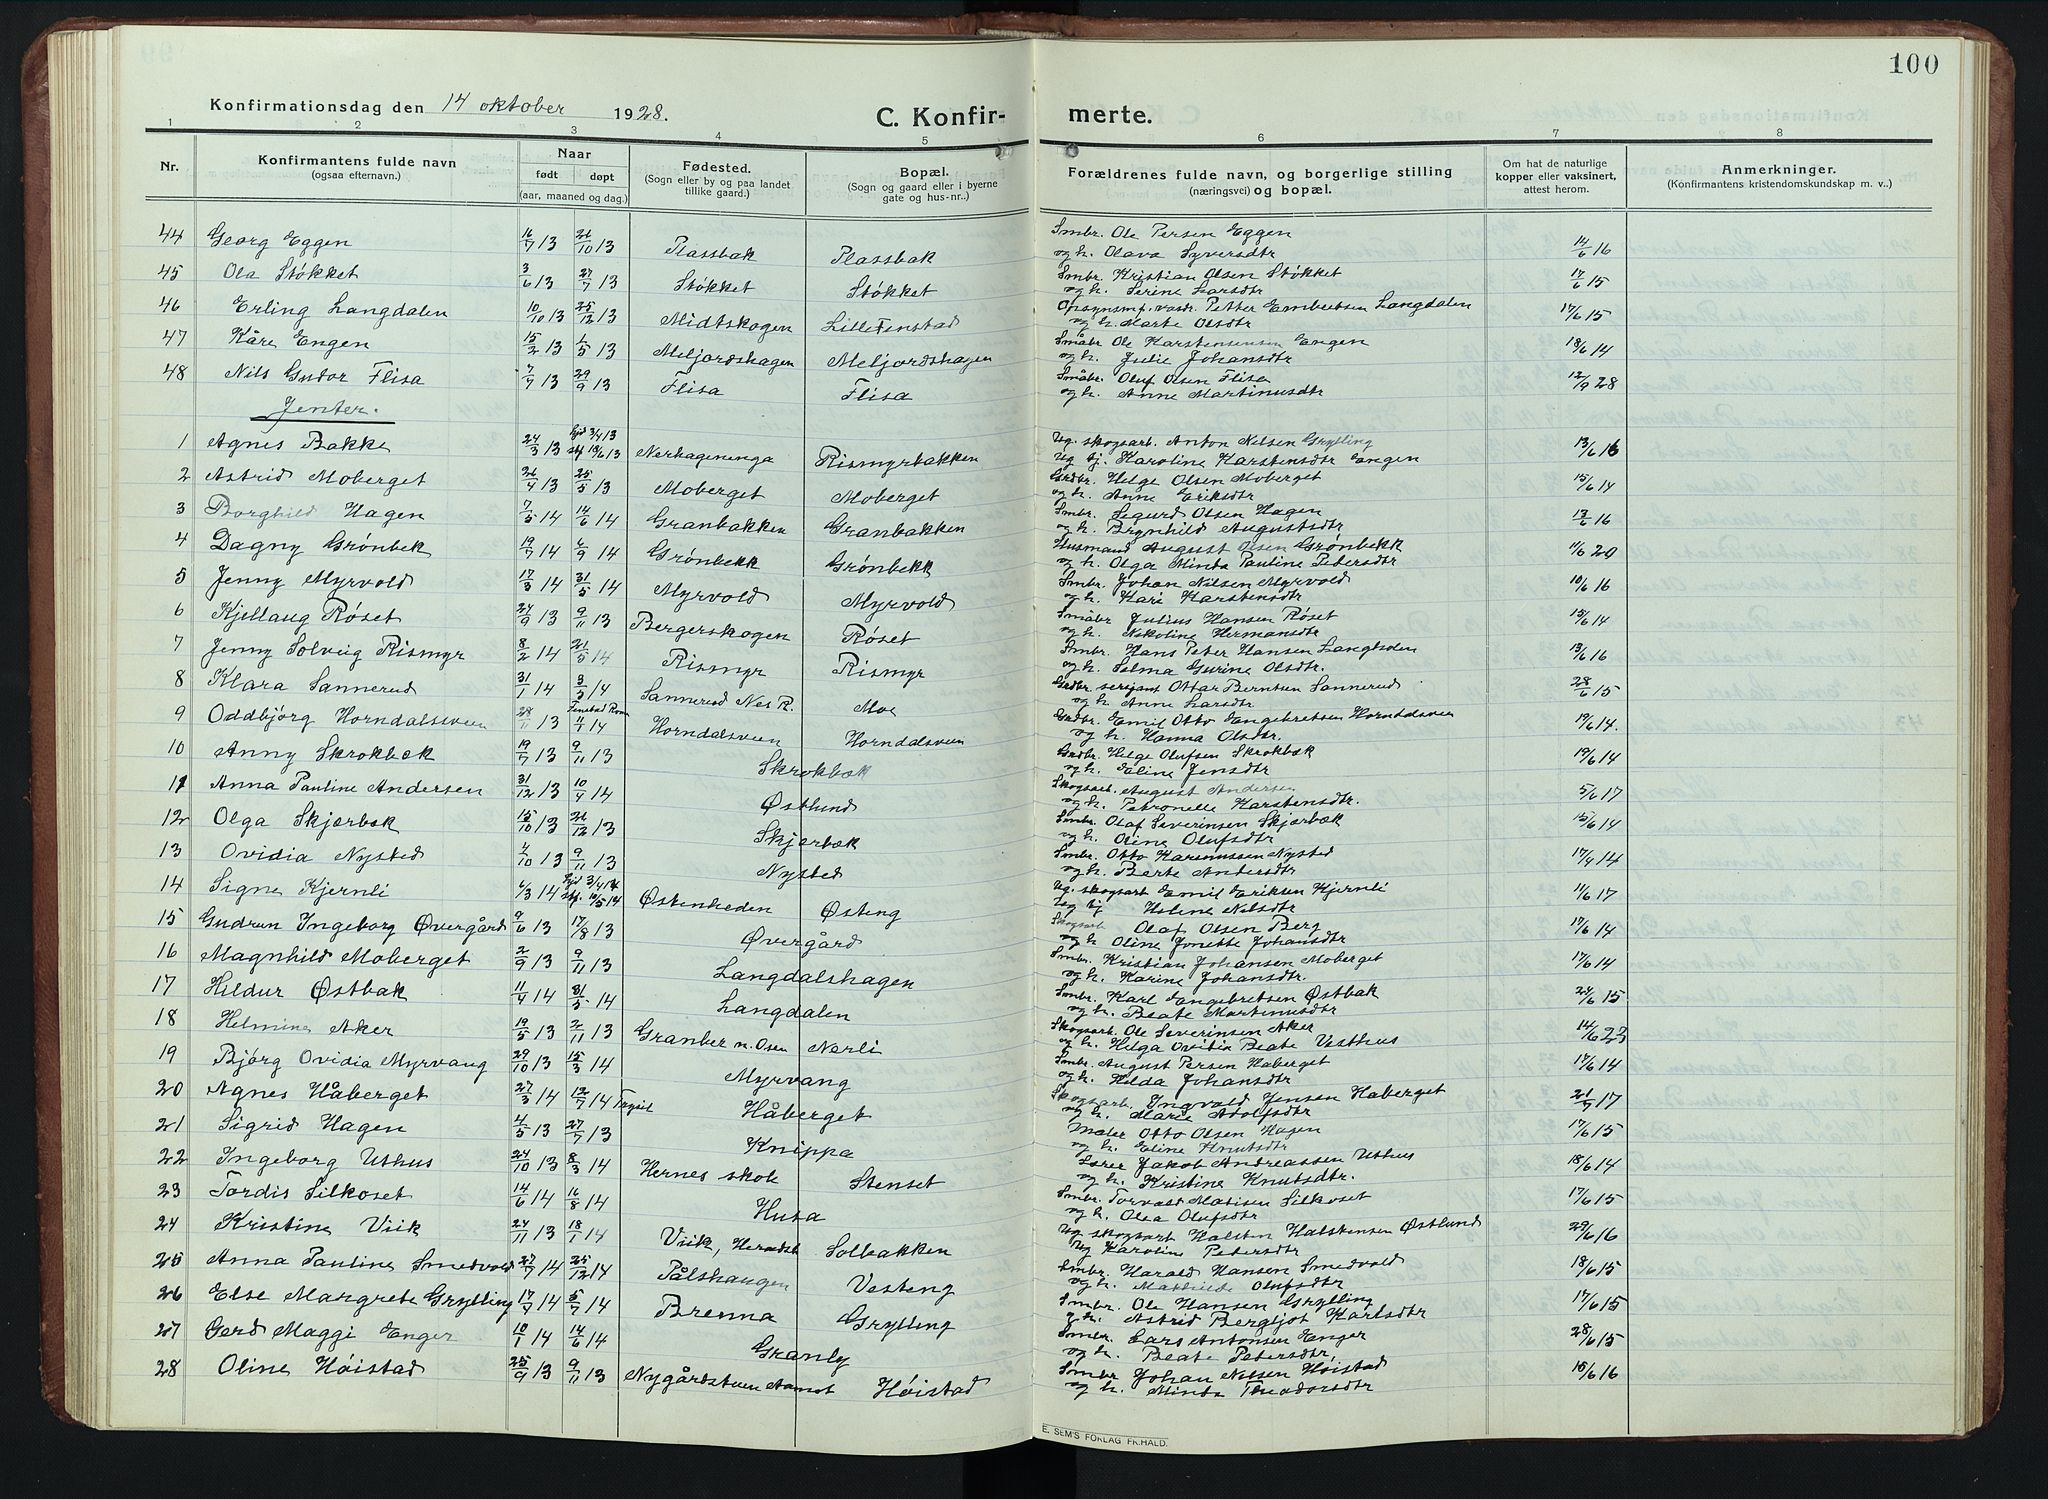 100
Konfirmationsdag den 14 oktober 1928.
C. Konfir-
merte.
1 2 3 4 5 6 7 8
Nr. Konfirmantens fulde navn (ogsaa efternavn.) Naar født døpt (aar, maaned og dag.) Fødested. (Sogn eller by og paa landet tillike gaard.) Bopæl. (Sogn og gaard eller i byerne gate og hus-nr..) Forældrenes fulde navn, og borgerlige stilling (næringsvei) og bopæl. Om hat de naturlige kopper eller vaksinert, attest herom. Anmerkninger. (Konfirmantens kristendomskundskap m. v..)
44 Georg Eggen 16/7 13 26/10 13 Plassbak Plassbak Smbr. Ole Persen Eggen og h. Olava Syversdtr 14/6 16
45 Ola Støkket 3/6 13 27/7 13 Støkket Støkket Smbr. Kristian Olsen Støkket og h. Serine Larsdtr 17/6 15
46 Erling Langdalen 10/10 13 25/12 13 Midtskogen Lille Fenstad Petter Embretsen Langdalen og h. Marte Olsdtr 17/6 15
47 Kåre Engen 15/2 13 1/5 13 Meljordshagen Meljordshagen Småbr Ole Karstensen Engen og h. Julie Johansdtr 18/6 14
48 Nils Gudor Flisa 7/9 13 29/9 13 Flisa Flisa Småbr. Oluf Olsen Flisa og h. Anne Martinusdtr 12/9 28
Jenter.
1 Agnes Bakke 24/3 13 Nerhageneнga Rismyrbakken Ug. skogsarb. Anton Nilsen Grylling Ug tj. Karoline Karstensdtr Engen 13/6 16
2 Astrid Moberget 26/4 13 25/5 13 Moberget Moberget Grdbr. Helge Olsen Moberget og h. Anne Eriksdtr 15/6 14
3 Borghild Hagen 7/5 14 14/6 14 Granbakken Granbakken Smbr. Sigurd Olsen Hagen og h. Brynhild Augustsdtr 13/6 16
4 Dagny Grønbek 19/7 14 6/9 14 Grønbekk Grønbekk Husmand August Olsen Grønbekk og h. Olga Minda Pauline Pedersdtr 11/6 20
5 Jenny Myrvold 17/3 14 31/5 14 Myrvold Myrvold Smbr. Johan Nilsen Myrvold og h. Kari Karstensdtr 10/6 16
6 Kjellaug Røset 24/9 13 9/11 13 Bergerskogen Røset Småbr Julius Hansen Røset og h. Nikoline Hermansdtr 15/6 14
7 Jenny Solveig Rismyr 8/2 14 21/5 14 Rismyr Rismyr Smbr. Hans Peter Hansen og h. Selma Gurine Olsdtr. 13/6 16
8 Klara Sannerud 31/1 14 3/5 14 Sannerud Nes R. Moe Grdbr. serjant Ottar Berntsen Sannerud og h. Anne Larsdtr 28/6 15
9 Oddbjørg Horndalsveen 28/11 13 4/1 14 Horndalsveen Horndalsveen Grdbr. Emil Otto Engebretsen Horndalsveen og h. Hanna Olsdtr. 19/6 14.
10 Anny Skrokbæk 19/7 13 9/11 13 Skrokbæk Grdbr. Helge Olufsen Skrokbæk og h. Eline Jensdtr 19/6 14
11 Anna Pauline Andersen 31/12 13 10/4 14 Østlund Skogsarb. August Andersen og h. Petronelle Karstensdtr. 5/6 17
12 Olga Skjærbæk 15/10 13 26/12 13 Skjærbæk Smbr. Olaf Severinsen Skjærbæk og h. Oline Olufsdtr 15/6 14
13 Ovidia Nysted 4/10 13 9/11 13 Nysted Smbr. Otto Karenussen Nysted og h. Berte Andersdtr 17/4 14
14 Signe Kjernli 6/3 14 Østenheden Østeng Ug. skogsarb Emil Eriksen Kjernli og tj Helene Nilsdtr 11/6 17
15 Gudrun Ingeborg Øvergård 9/6 13 17/8 13 Øvergård Skogsarb Olaf Olsen Berg og h Oline Jonette Johansdtr 17/6 14
16 Magnhild Moberget 2/9 13 9/11 13 Langdalshagen Smbr. Kristian Johansen Moberget og h. Karine Johansdtr. 17/6 14
17 Hildur Østbak 11/4 14 31/5 14 Langdalen Smbr. Karl Engebretsen Østbak og h. Beate Martinusdtr 24/6 15
18 Helmine Aker 19/5 13 2/11 13 Granber n. Osen Nerli Skogsarb. Ole Severinsen Aker og h. Helga Ovidia Beate Vesthus 14/6 23
19 Bjørg Ovidia Myrvang 29/10 13 15/3 14 Myrvang Smbr. August Persen Haberget og h. Hilda Johansdtr 17/6 14
20 Agnes Håberget 27/3 14 12/7 14 Trysil Håberget Skogsarb. Ingvald Jensen Haberget og h. Marie Adolfsdtr 21/7 17
21 Sigrid Hagen 4/5 13 27/7 13 Knippa Maler Otto Olsen Hagen og h. Eline Knutsdtr 17/6 15
22 Ingeborg Uthus 24/10 13 8/3 14 Hernes skole Stenset Lærer Jakob Andreassen Uthus og h. Kristine Knutsdtr. 18/6 14
23 Tordis Silkoset 14/6 14 16/8 14 Husa Smbr. Torvald Matisen Silkoset og h. Olea Olufsdtr 17/6 15
24 Kristine Viik 24/11 13 18/1 14 Viik, Heradsb Solbakken Ug. skogsarb Halsten Halstensen Østlund Ug Karoline Pedersdtr 29/6 16
25 Anna Pauline Smedvold 27/9 14 25/12 14 Pålshaugen Vesteng Smbr. Harald Hansen Smedvold og h. Mathilde Olufsdtr 18/6 15
26 Else Margrete Grylling 17/4 14 5/7 14 Brenna Grylling Smbr. Ole Hansen Grylling og h. Astrid Bergljot Karlsdtr 17/6 15
27 Gerd Maggi Enger 10/1 14 14/6 14 Granly Smbr. Lars Antonsen Enger og h. Beate Pedersdtr 28/6 15
28 Oline Høistad 25/9 13 9/11 13 Nygårdstuen Aamot Høistad Smbr Johan Nilsen Høistad og h. Minda Theodorsdtr 16/6 16
E. SEM'S FORLAG FR.HALD.